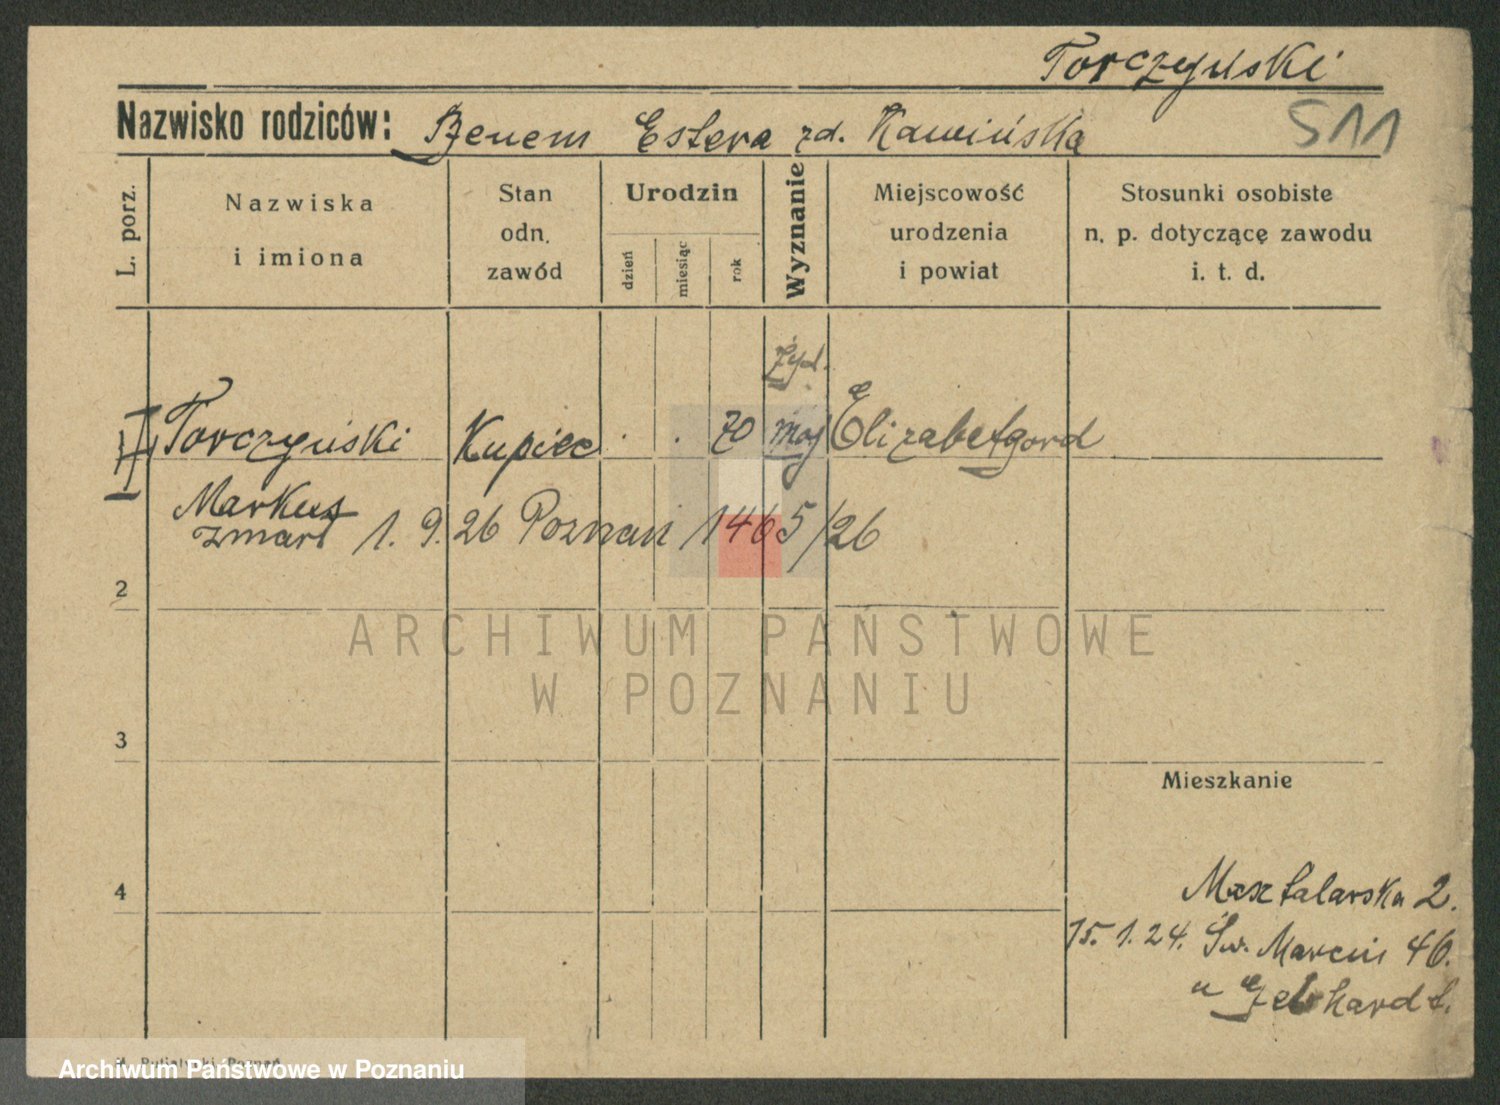 Torczyński
Nazwisko rodziców: Benem Estera zd. Kamińska
S11
L. porz.
Nazwiska
i imiona
Stan
odn.
zawód
Urodzin
dzień
miesiąc
rok
Wyznanie
Miejscowość
urodzenia
i powiat
Stosunki osobiste
n. p. dotyczącę zawodu
i. t. d.
żyd.
Torczyński Kupiec . . 70 moj Elizabetgord
Markus
zmarł 1. 9. 26 Poznań 1465/26
2
ARCHIWUM PAŃSTWOWE
W POZNANIU
3
Mieszkanie
4
Masztalarska 2.
15. 1. 24. Św. Marcin 46.
u Gebhardt.
Poznań
Archiwum Państwowe w Poznaniu